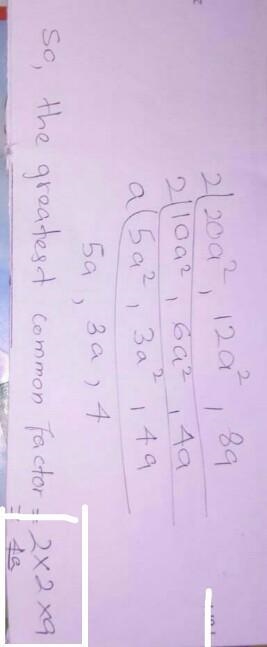 2 | 20a², 12a², 8a
2 | 10a², 6a², 4a
a ( 5a², 3a², 4a
5a, 3a, 4
So, the greatest common factor = 2×2×a
= 4a